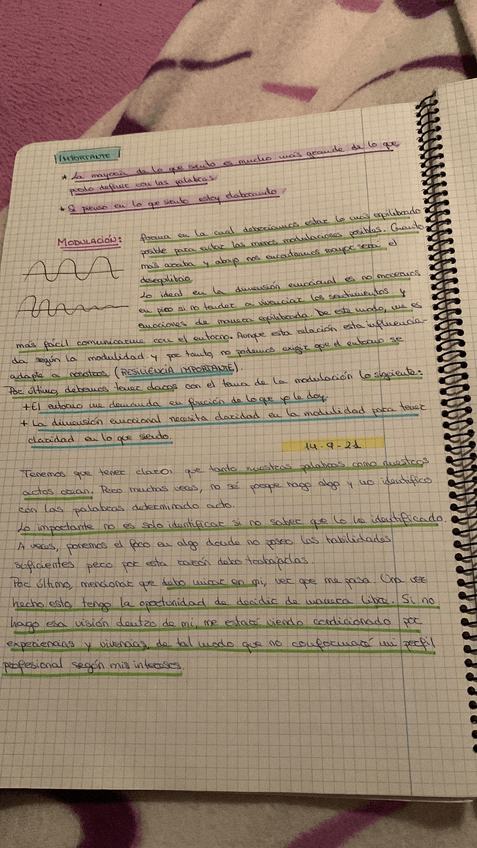 IMPORTANTE
* La mayoría de lo que siento es mucho más grande de lo que
puedo definir con las palabras.
* Si pienso en lo que siento estoy elaborando
MODULACIÓN: Forma en la cual deberíamos estar lo más equilibrado
posible para evitar las menos modulaciones posibles. Cuanto
más arriba y abajo nos encontremos mayor será el
desequilibrio.
Lo ideal en la dimensión emocional es no movernos
en pico si no tender a vivenciar los sentimientos y
emociones de manera equilibrada. De este modo, me es
más fácil comunicarme con el entorno. Aunque esta relación esta influencia-
da según la modulidad y por tanto, no podemos exigir que el entorno se
adapte a nosotros (RESILIENCIA IMPORTANTE).
Por último, debemos tener claros con el tema de la modulación lo siguiente:
+ El entorno me demanda en función de lo que yo le doy.
+ La dimensión emocional necesita claridad en la modulidad para tener
claridad en lo que siento.
14-9-21
Tenemos que tener claro: que tanto nuestras palabras como nuestros
actos obran. Pero muchas veces, no sé porque hago algo y no identifico
con las palabras determinado acto.
Lo importante no es solo identificar si no saber que lo he identificado.
A veces, ponemos el foco en algo donde no poseo las habilidades
suficientes pero por esta razón debo trabajarlas.
Por último, mencionar que debo mirar en mi, ver que me pasa. Una vez
hecho esto, tengo la oportunidad de decidir de manera libre. Si no
hago esa visión dentro de mi, me estaré viendo condicionado por
experiencias y vivencias, de tal modo que no conformaré mi perfil
profesional según mis intereses.